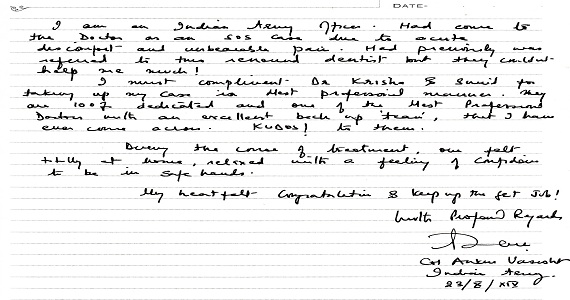 DATE-
I am an Indian Army Officer. Had come to
the Doctor as an SOS case due to acute
discomfort and unbearable pain. Had previously was
referred to two renound dentist but they couldn't
help me much!
I must compliment Dr Krishna & Sunil for
taking up my case in a Most professional manner. They
are 100% dedicated and one of the Most Professional
Doctors with an excellent back up 'team', that I have
ever come across. KUDOS! to them.
During the course of treatment, one felt
totally at home, relaxed with a feeling of Confidence
to be in safe hands.
My heartfelt Congratulation & keep up the get Job!
With Profound Regards
Col Ankur Vasisht
Indian Army.